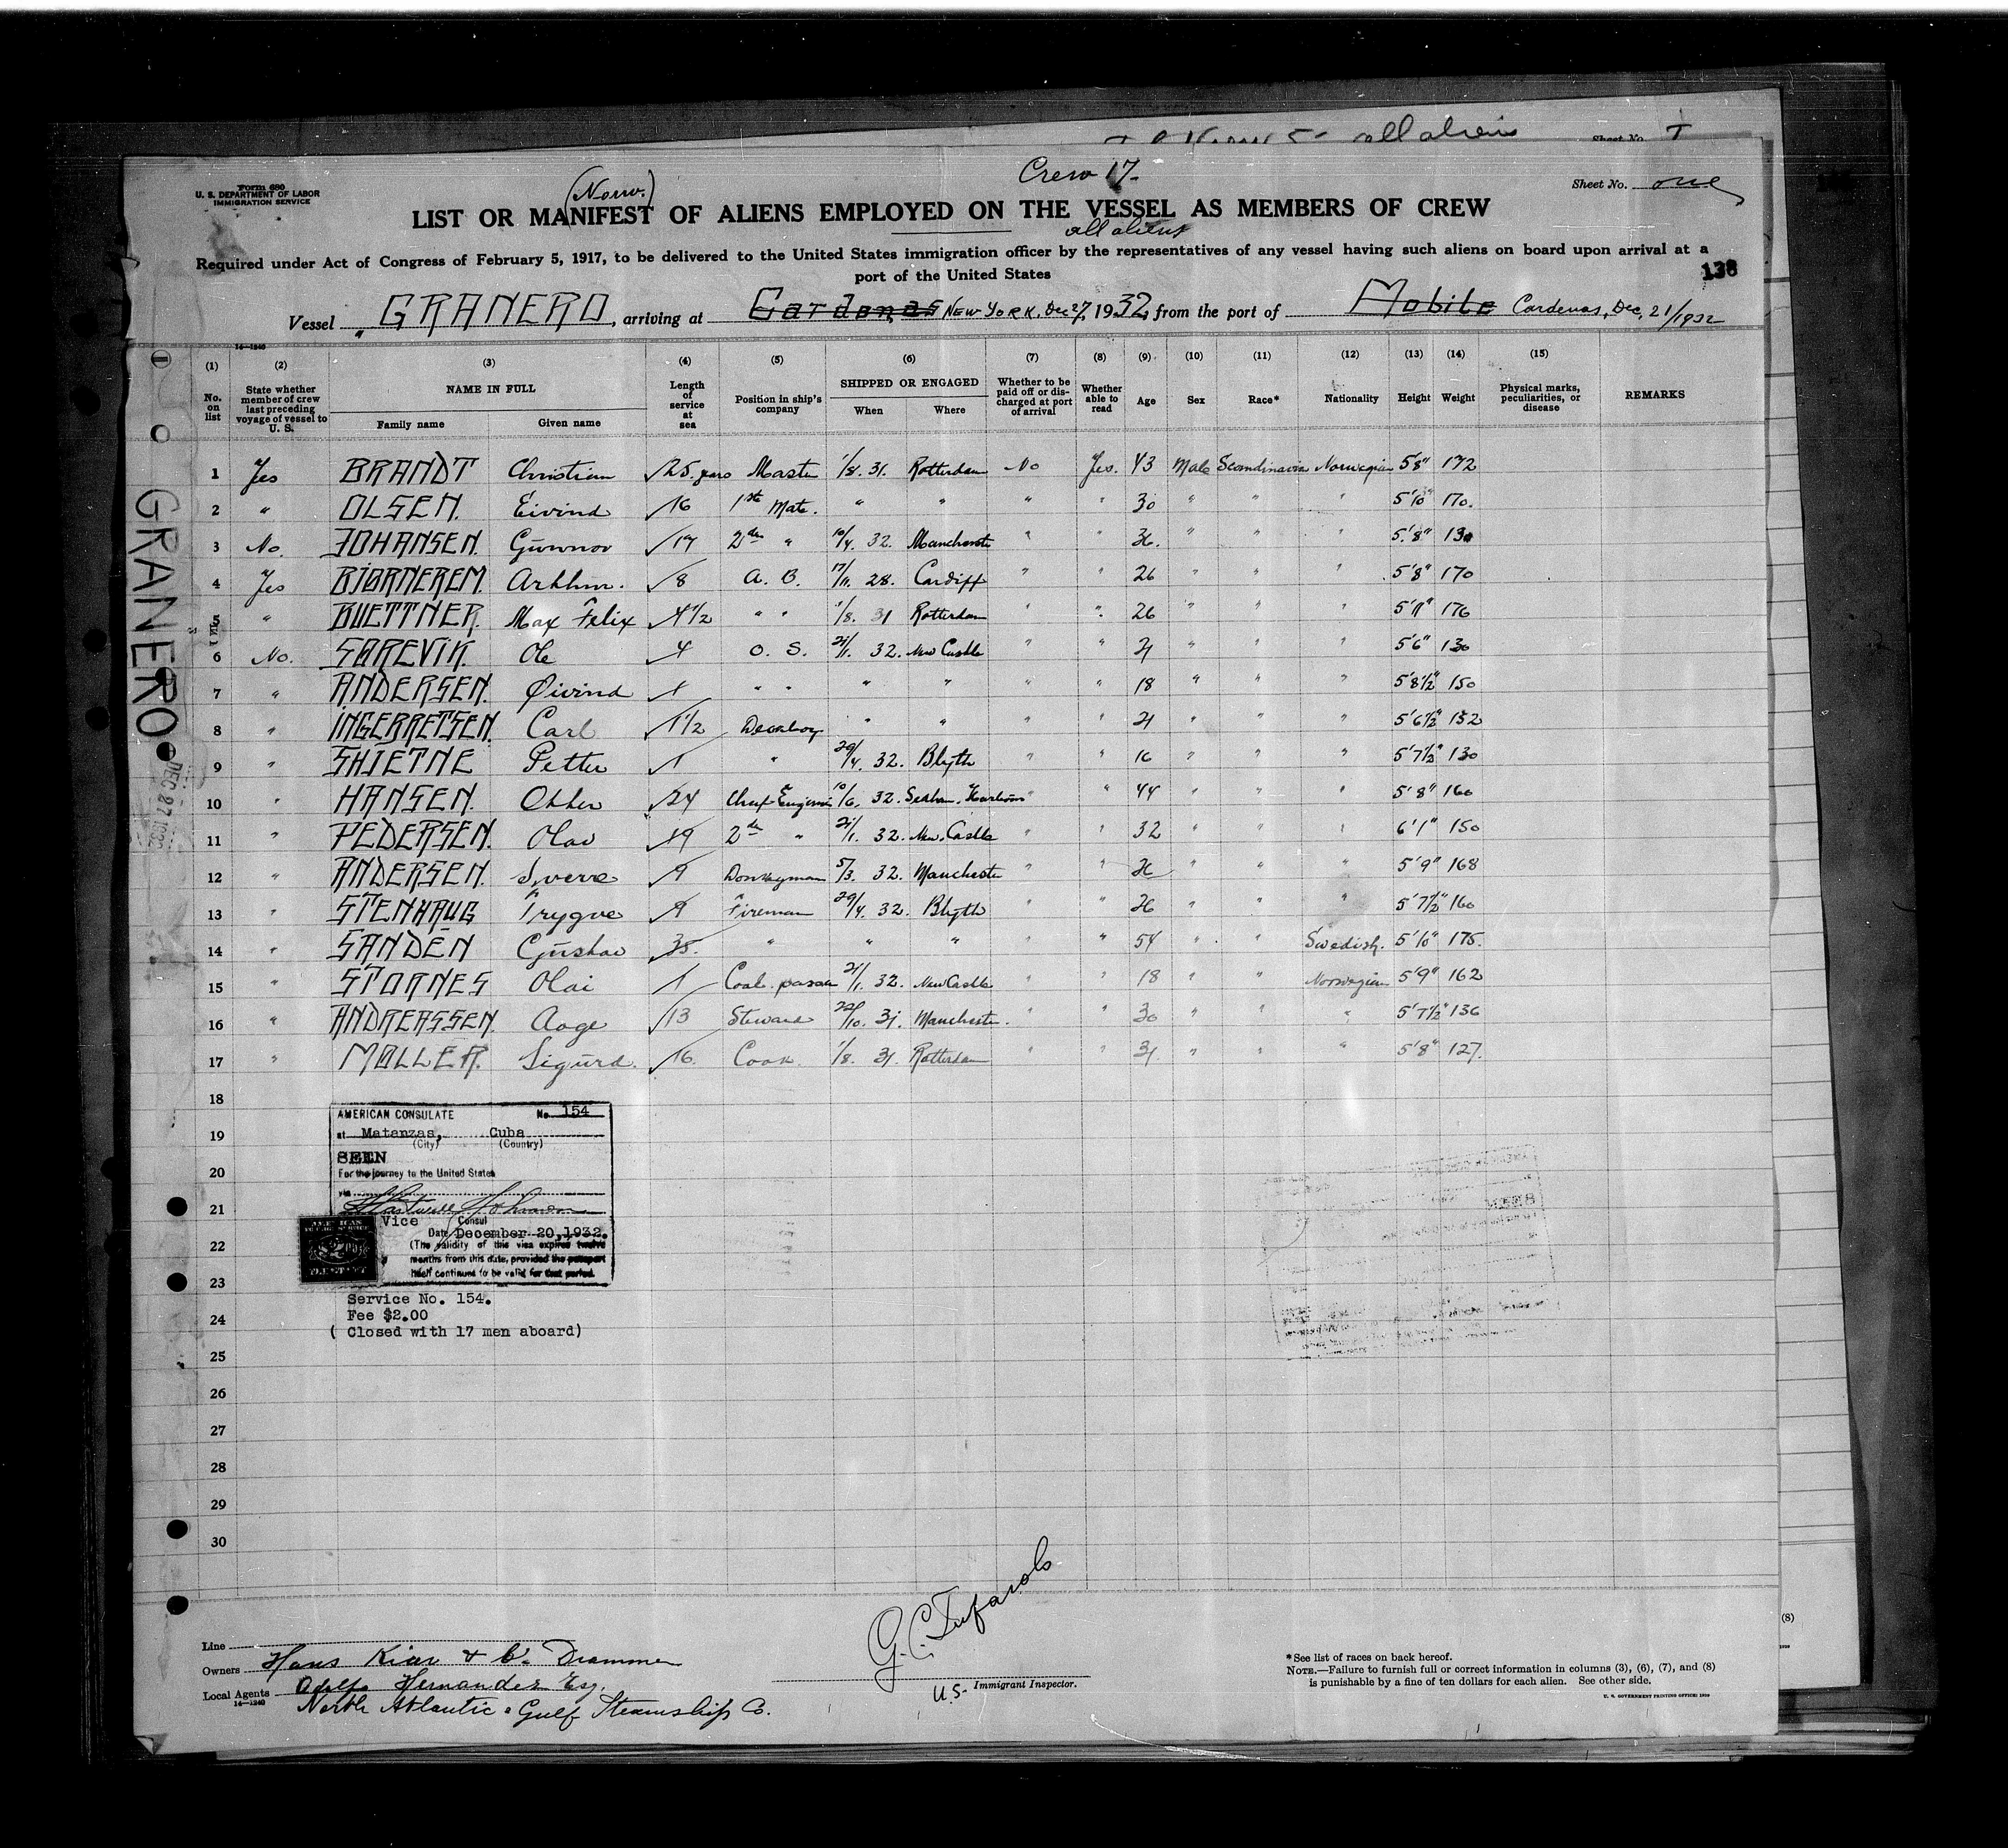 all aliens
Sheet No. 1
Form 680
U. S. DEPARTMENT OF LABOR
IMMIGRATION SERVICE
(Norw.)
Crew 17-
Sheet No. one
LIST OR MANIFEST OF ALIENS EMPLOYED ON THE VESSEL AS MEMBERS OF CREW
all aliens
Required under Act of Congress of February 5, 1917, to be delivered to the United States immigration officer by the representatives of any vessel having such aliens on board upon arrival at a
port of the United States
138
Vessel "GRANERO, arriving at Cardenas NEW YORK, Dec 27, 1932, from the port of Mobile Cardenas, Dec, 21/1932
14—1240
(1) (2) (3) (4) (5) (6) (7) (8) (9) (10) (11) (12) (13) (14) (15)
No. on list State whether member of crew last preceding voyage of vessel to U. S. NAME IN FULL Family name Given name Length of service at sea Position in ship's company SHIPPED OR ENGAGED When Where Whether to be paid off or discharged at port of arrival Whether able to read Age Sex Race* Nationality Height Weight Physical marks, peculiarities, or disease REMARKS
1 Yes BRANDT Christian 25 years Master 1/8. 31. Rotterdam No Yes. 43 Male Scandinavia Norwegian 5'8" 172
2 " OLSEN. Eivind 16 1st Mate. " " " " 30 " " " 5'10" 170.
3 No. JOHANSEN. Gunnar 17 2de " 10/4. 32. Manchester " " 36. " " " 5'8" 130
4 Yes BJØRNEREM. Arthur. 8 A. B. 17/11. 28. Cardiff " " 26 " " " 5'8" 170
5 " BUETTNER. Max Felix 4 1/2 " " 1/8. 31 Rotterdam " " 26 " " " 5'11" 176
6 No. SØREVIK. Ole 4 O. S. 21/1. 32. New Castle " " 21 " " " 5'6" 130
7 " ANDERSEN. Øivind 1 " " " " " " 18 " " " 5'8½" 150
8 " INGEBRETSEN. Carl 1 1/2 Decksboy " " " " 21 " " " 5'6½" 152
9 " SHIETNE Petter 1 " 29/4. 32. Blyth " " 16 " " " 5'7½" 130
10 " HANSEN. Other 24 Chief Engineer 10/6. 32. Seaham. Harbour " " 44 " " " 5'8" 160
11 " PEDERSEN. Olav 19 2de " 21/1. 32. New. Castle " " 32 " " " 6'1" 150
12 " ANDERSEN. Sverre 9 Donkeyman 5/3. 32. Manchester " " 26 " " " 5'9" 168
13 " STENHAUG Trygve 9 Fireman 29/4. 32. Blyth " " 26 " " " 5'7½" 160
14 " SANDEN Gustav 35. " " " " " 54 " " Swedish. 5'10" 175.
15 " STORNES Olai 1 Coal. passer 21/1. 32. New Castle " " 18 " " Norwegian 5'9" 162
16 " ANDREASSEN. Aage 13 Steward 22/10. 31. Manchester. " " 30 " " " 5'7½" 136
17 " MØLLER. Sigurd. 16. Cook 1/8. 31. Rotterdam " " 31 " " " 5'8" 127.
18
19
20
21
22
23
24
25
26
27
28
29
30
GRANERO
DEC 27 1932
AMERICAN CONSULATE No. 154
at Matanzas, Cuba
(City) (Country)
SEEN
For the journey to the United States
via
Hartwell Johnson
Vice Consul
Date December 20, 1932.
(The validity of this visa expires twelve
months from this date, provided the passport
itself continues to be valid for that period.
Service No. 154.
Fee $2.00
( Closed with 17 men aboard)
Line
Owners Hans Kiær & Co. Drammen
Local Agents Adolfo Hernandez Esq.
14—1240
North Atlantic & Gulf Steamship Co.
G.C. Tufarolo
U.S. Immigrant Inspector.
*See list of races on back hereof.
NOTE.—Failure to furnish full or correct information in columns (3), (6), (7), and (8)
is punishable by a fine of ten dollars for each alien. See other side.
U. S. GOVERNMENT PRINTING OFFICE: 1930
(8)